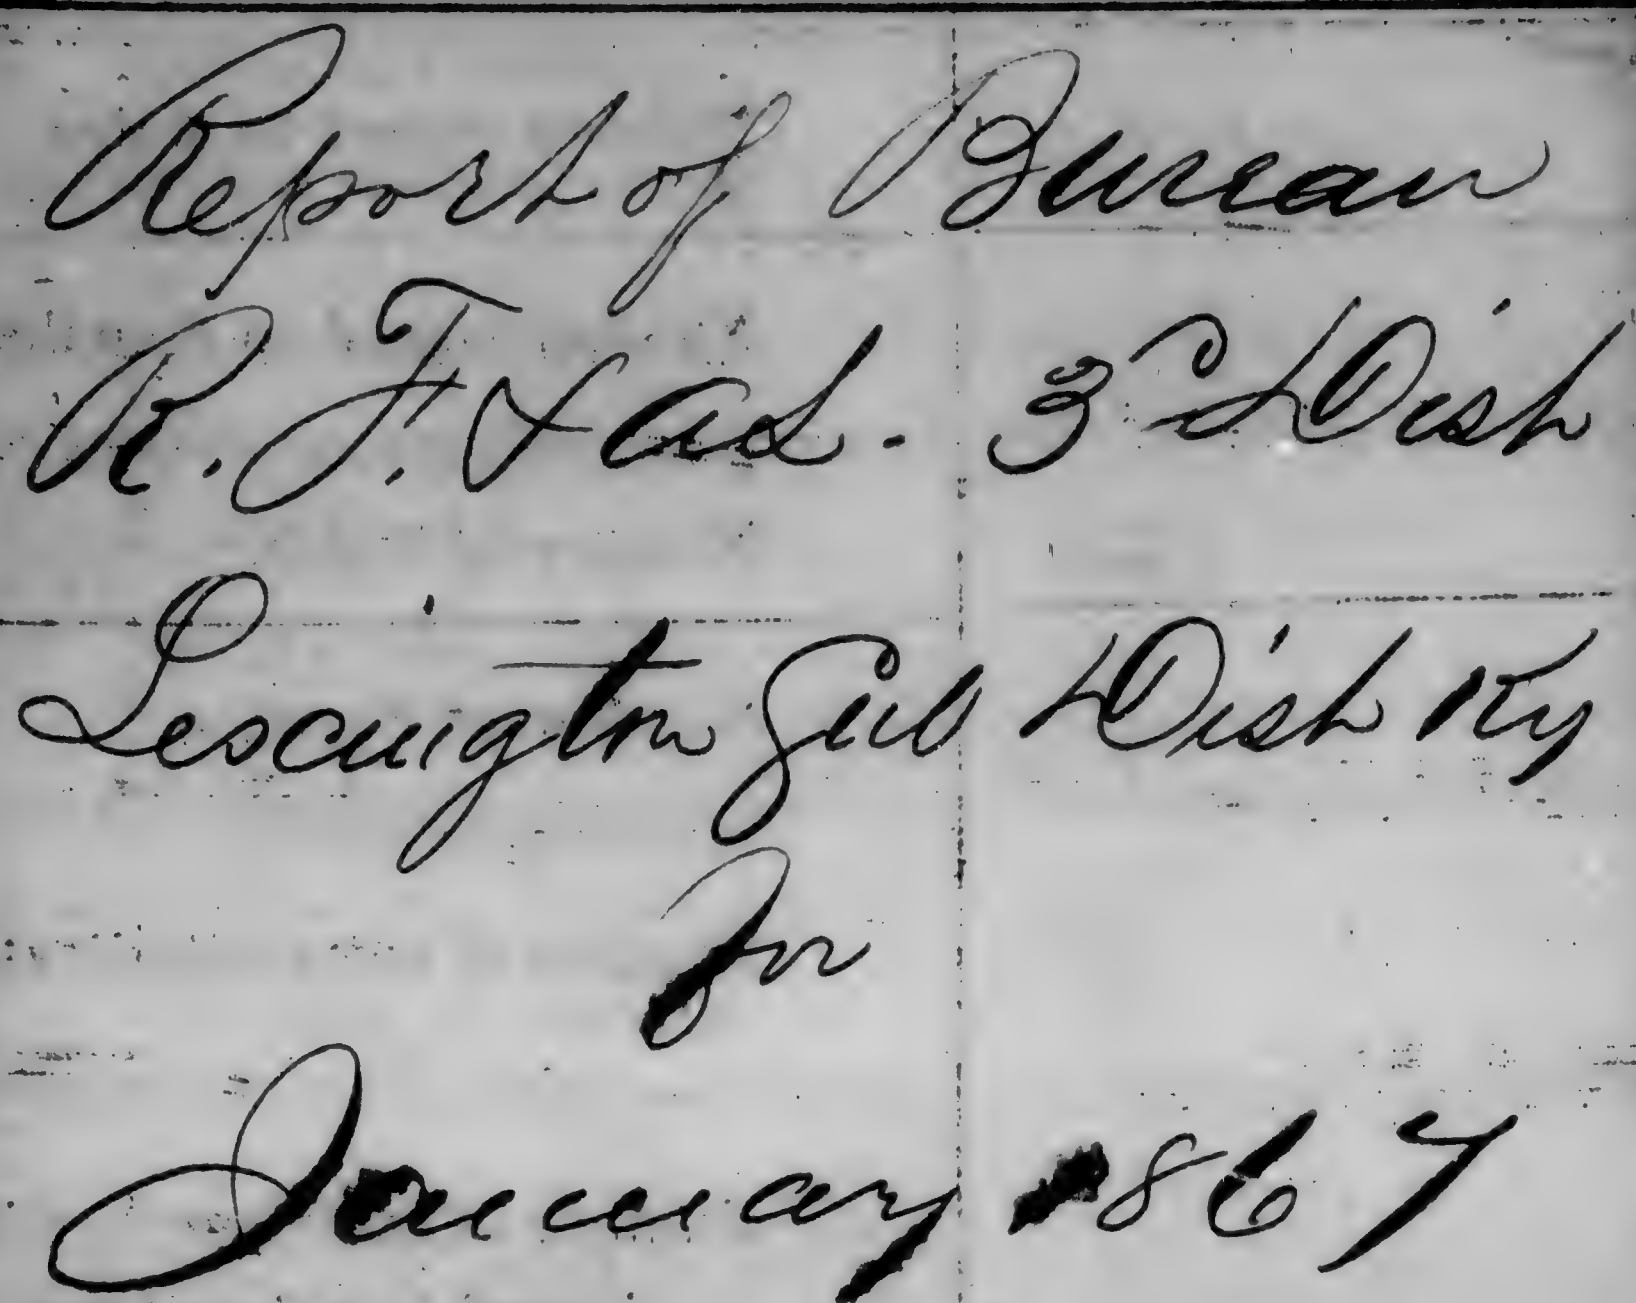 Report of Bureau
R. F. & A L. 3rd Dist
Lexington Sub Dist Ky
For
January 1867